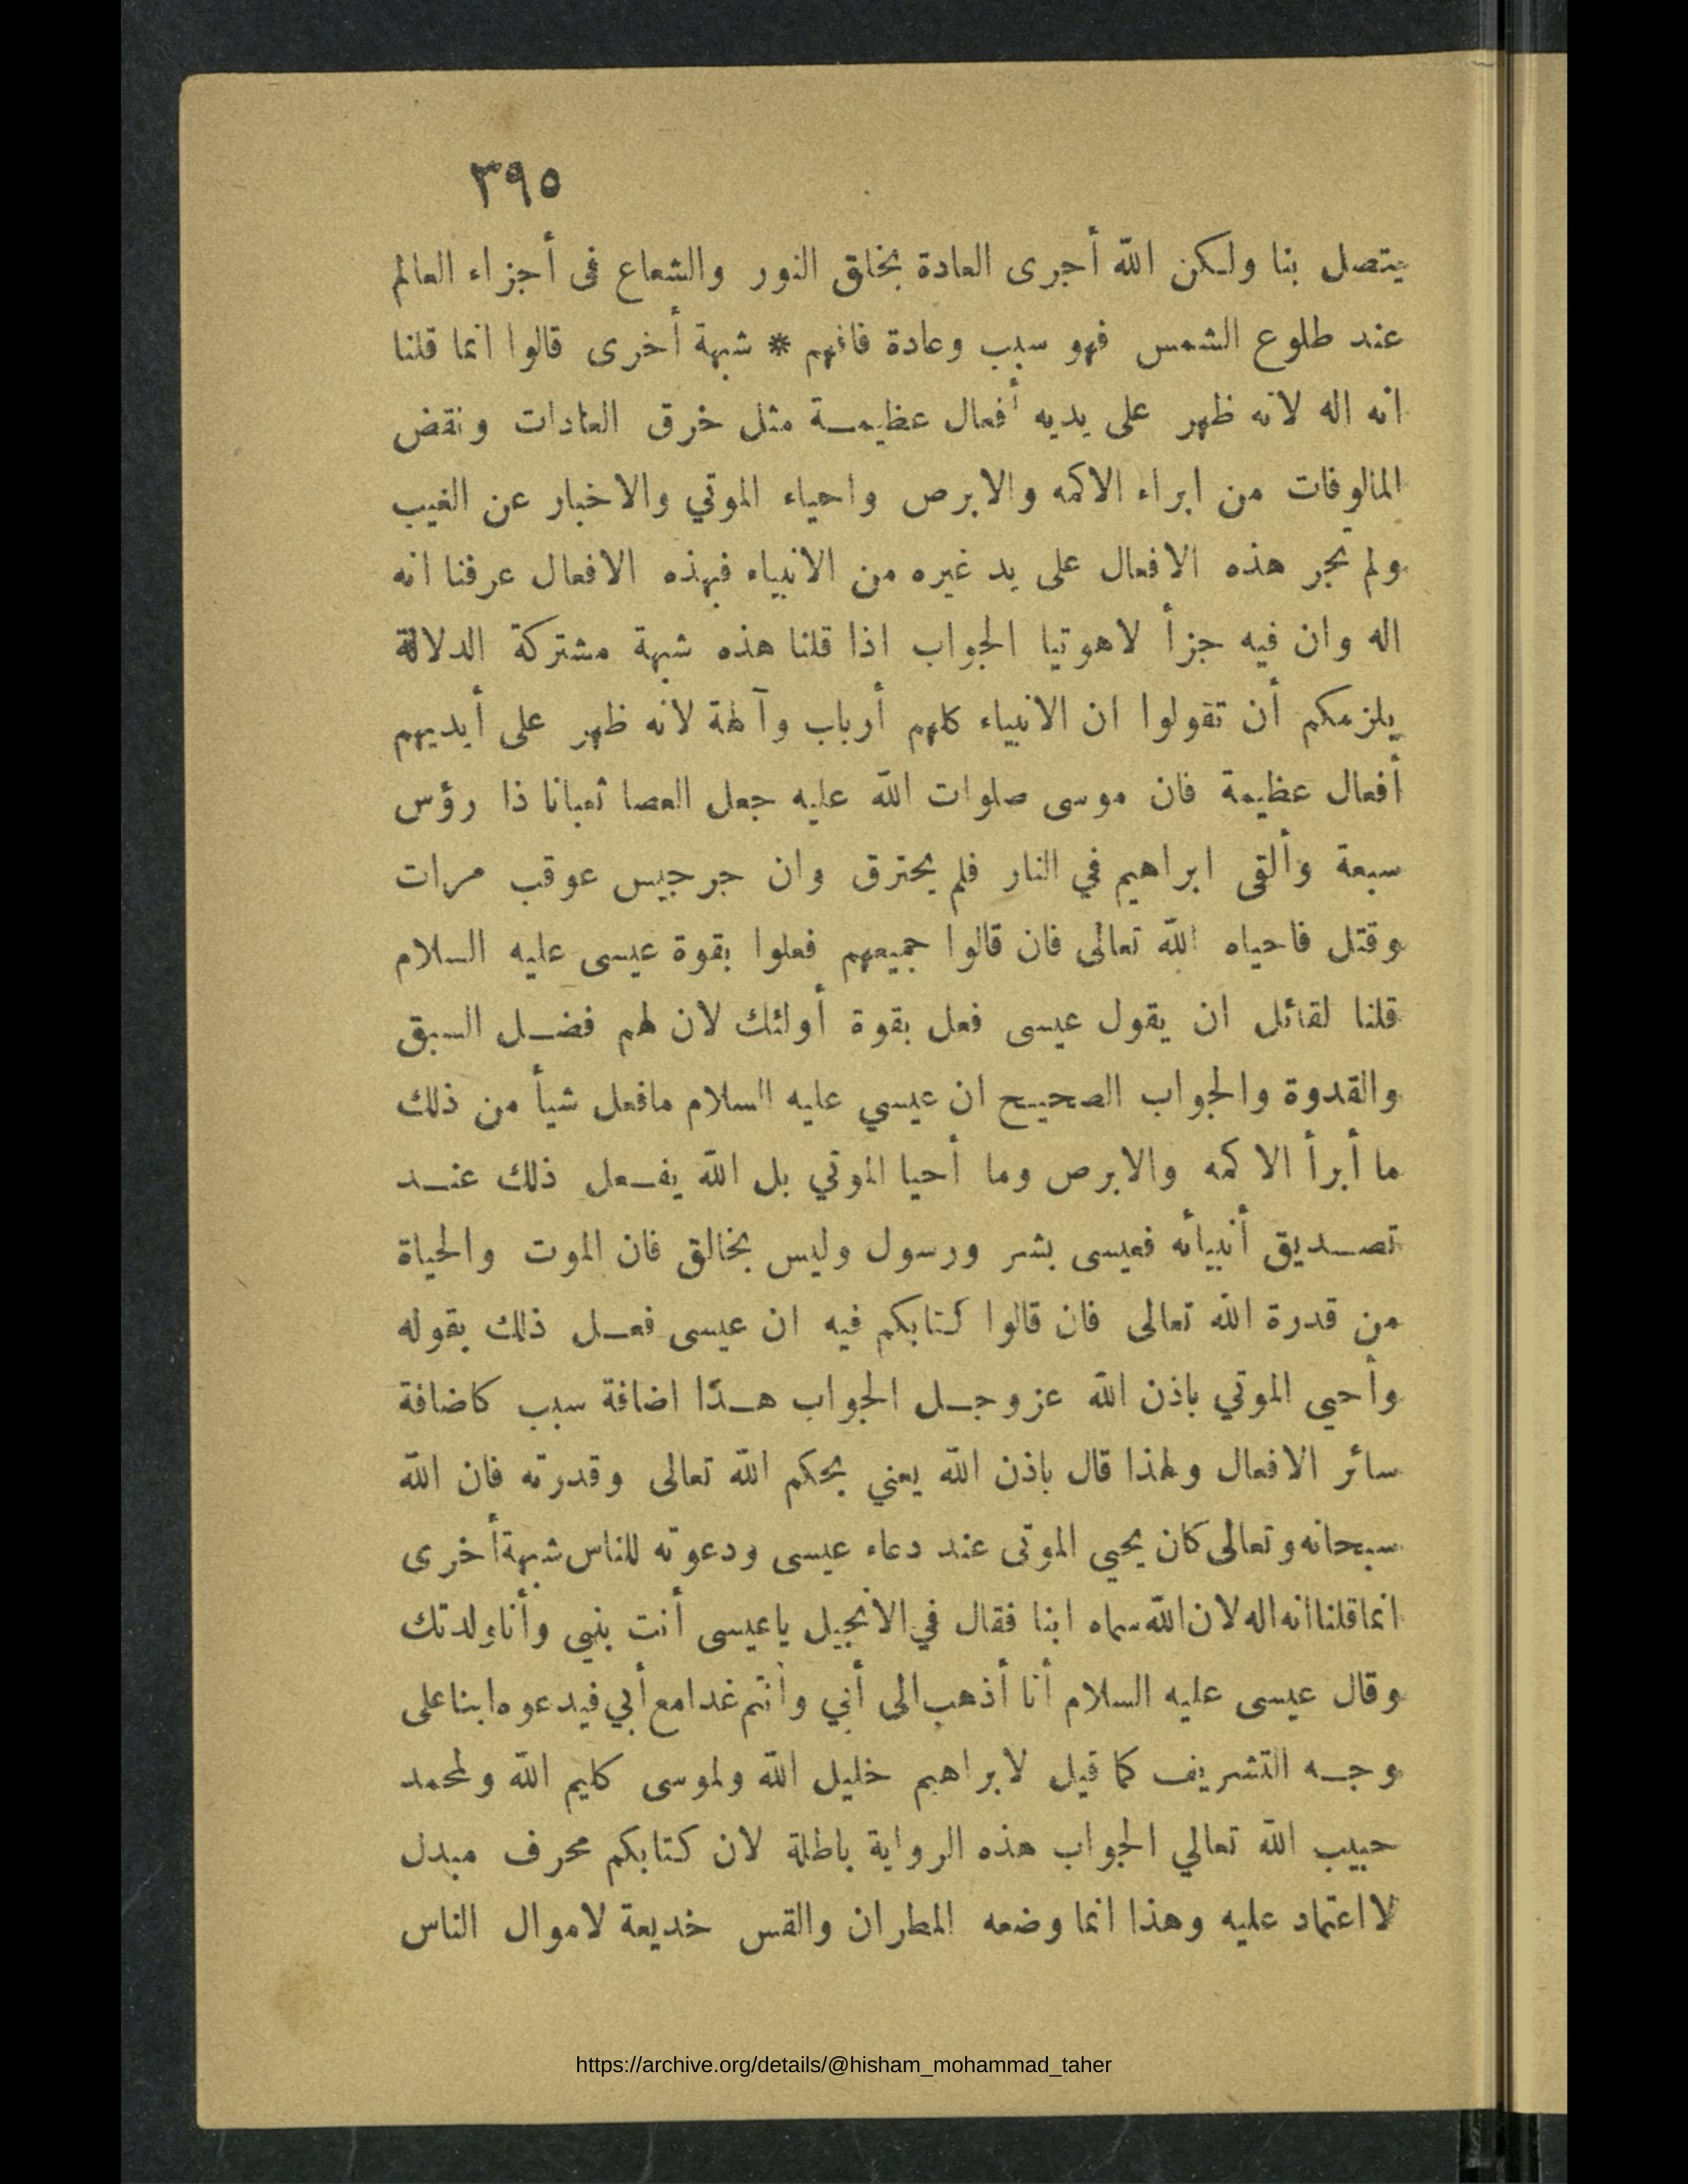 ٣٩٥
يتصل بنا ولكن الله أجرى العادة بخلق النور والشعاع فى أجزاء العالم
عند طلوع الشمس فهو سبب وعادة فافهم * شبهة أخرى قالوا انما قلنا
انه اله لانه ظهر على يديه أفعال عظيمة مثل خرق العادات ونقض
المالوفات من ابراء الاكمه والابرص واحياء الموتي والاخبار عن الغيب
ولم تجر هذه الافعال على يد غيره من الانبياء فبهذه الافعال عرفنا انه
اله وان فيه جزأ لاهوتيا الجواب اذا قلنا هذه شبهة مشتركة الدلالة
يلزمكم أن تقولوا ان الانبياء كلهم أرباب وآلهة لانه ظهر على أيديهم
أفعال عظيمة فان موسى صلوات الله عليه جعل العصا ثعبانا ذا رؤس
سبعة وألقى ابراهيم في النار فلم يحترق وان جرجيس عوقب مرات
وقتل فاحياه الله تعالى فان قالوا جميعهم فعلوا بقوة عيسى عليه السلام
قلنا لقائل ان يقول عيسى فعل بقوة أولئك لان لهم فضل السبق
والقدوة والجواب الصحيح ان عيسي عليه السلام مافعل شيأ من ذلك
ما أبرأ الاكمه والابرص وما أحيا الموتي بل الله يفعل ذلك عند
تصديق أنبيائه فعيسى بشر ورسول وليس بخالق فان الموت والحياة
من قدرة الله تعالى فان قالوا كتابكم فيه ان عيسى فعل ذلك بقوله
وأحيى الموتي باذن الله عز وجل الجواب هذا اضافة سبب كاضافة
سائر الافعال ولهذا قال باذن الله يعني بحكم الله تعالى وقدرته فان الله
سبحانه وتعالى كان يحيى الموتى عند دعاء عيسى ودعوته للناس شبهة أخرى
انما قلنا انه اله لان الله سماه ابنا فقال في الانجيل يا عيسى أنت بنيى وأنا ولدتك
وقال عيسى عليه السلام أنا أذهب الى أبي وأنتم غدا مع أبي فيدعوه ابنا على
وجه التشريف كما قيل لابراهيم خليل الله ولموسى كليم الله ولمحمد
حبيب الله تعالي الجواب هذه الرواية باطلة لان كتابكم محرف مبدل
لا اعتماد عليه وهذا انما وضعه المطران والقس خديعة لاموال الناس
https://archive.org/details/@hisham_mohammad_taher